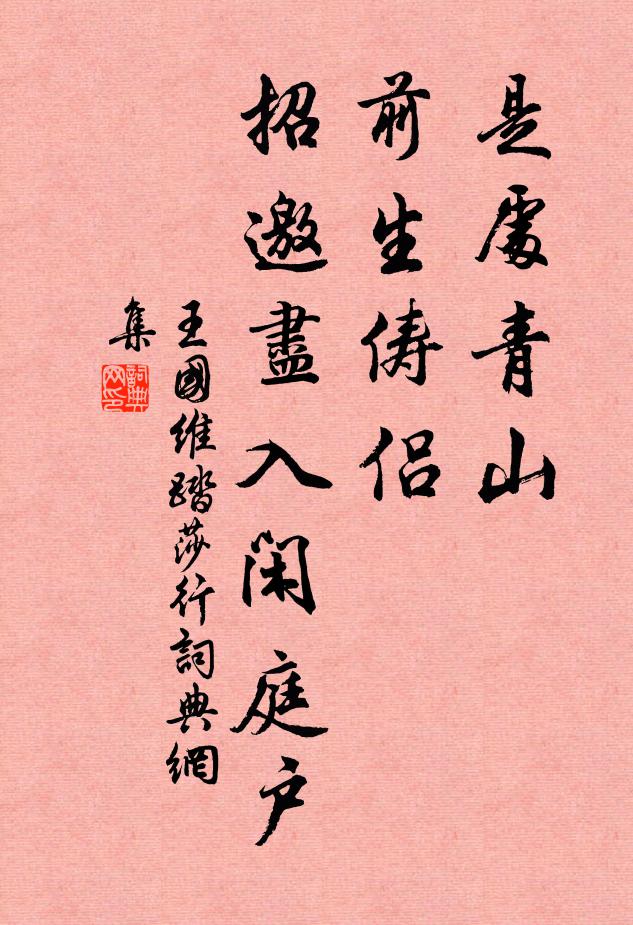 是處青山
前生儔侶
招邀盡入閑庭户
王國維踏莎行詞典網
集
詞典
网印